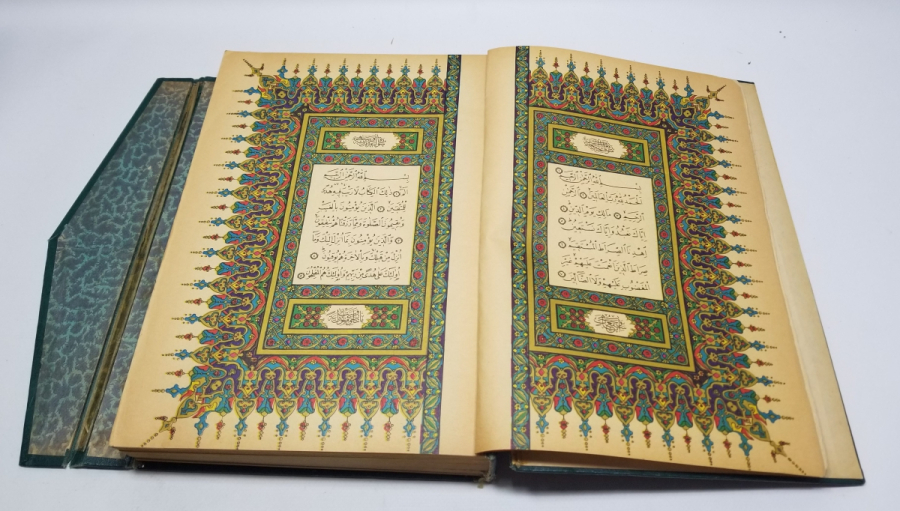 بِسْمِ اللهِ الرَّحْمٰنِ الرَّحِيمِ
اَلْحَمْدُ لِلّٰهِ رَبِّ الْعَالَمِينَ الرَّحْمٰنِ
الرَّحِيمِ مَالِكِ يَوْمِ الدِّينِ
اِيَّاكَ نَعْبُدُ وَاِيَّاكَ نَسْتَعِينُ
اِهْدِنَا الصِّرَاطَ الْمُسْتَقِيمَ
صِرَاطَ الَّذِينَ اَنْعَمْتَ عَلَيْهِمْ غَيْرِ
الْمَغْضُوبِ عَلَيْهِمْ وَلَا الضَّالِّينَ
بِسْمِ اللهِ الرَّحْمٰنِ الرَّحِيمِ
الٓمٓ ذٰلِكَ الْكِتَابُ لَا رَيْبَ فِيهِ هُدًى
لِلْمُتَّقِينَ الَّذِينَ يُؤْمِنُونَ بِالْغَيْبِ
وَيُقِيمُونَ الصَّلٰوةَ وَمِمَّا رَزَقْنَاهُمْ يُنْفِقُونَ
وَالَّذِينَ يُؤْمِنُونَ بِمَا اُنْزِلَ اِلَيْكَ وَمَا
اُنْزِلَ مِنْ قَبْلِكَ وَبِالْاٰخِرَةِ هُمْ يُوقِنُونَ
اُولٰئِكَ عَلٰى هُدًى مِنْ رَبِّهِمْ وَاُولٰئِكَ هُمُ الْمُفْلِحُونَ